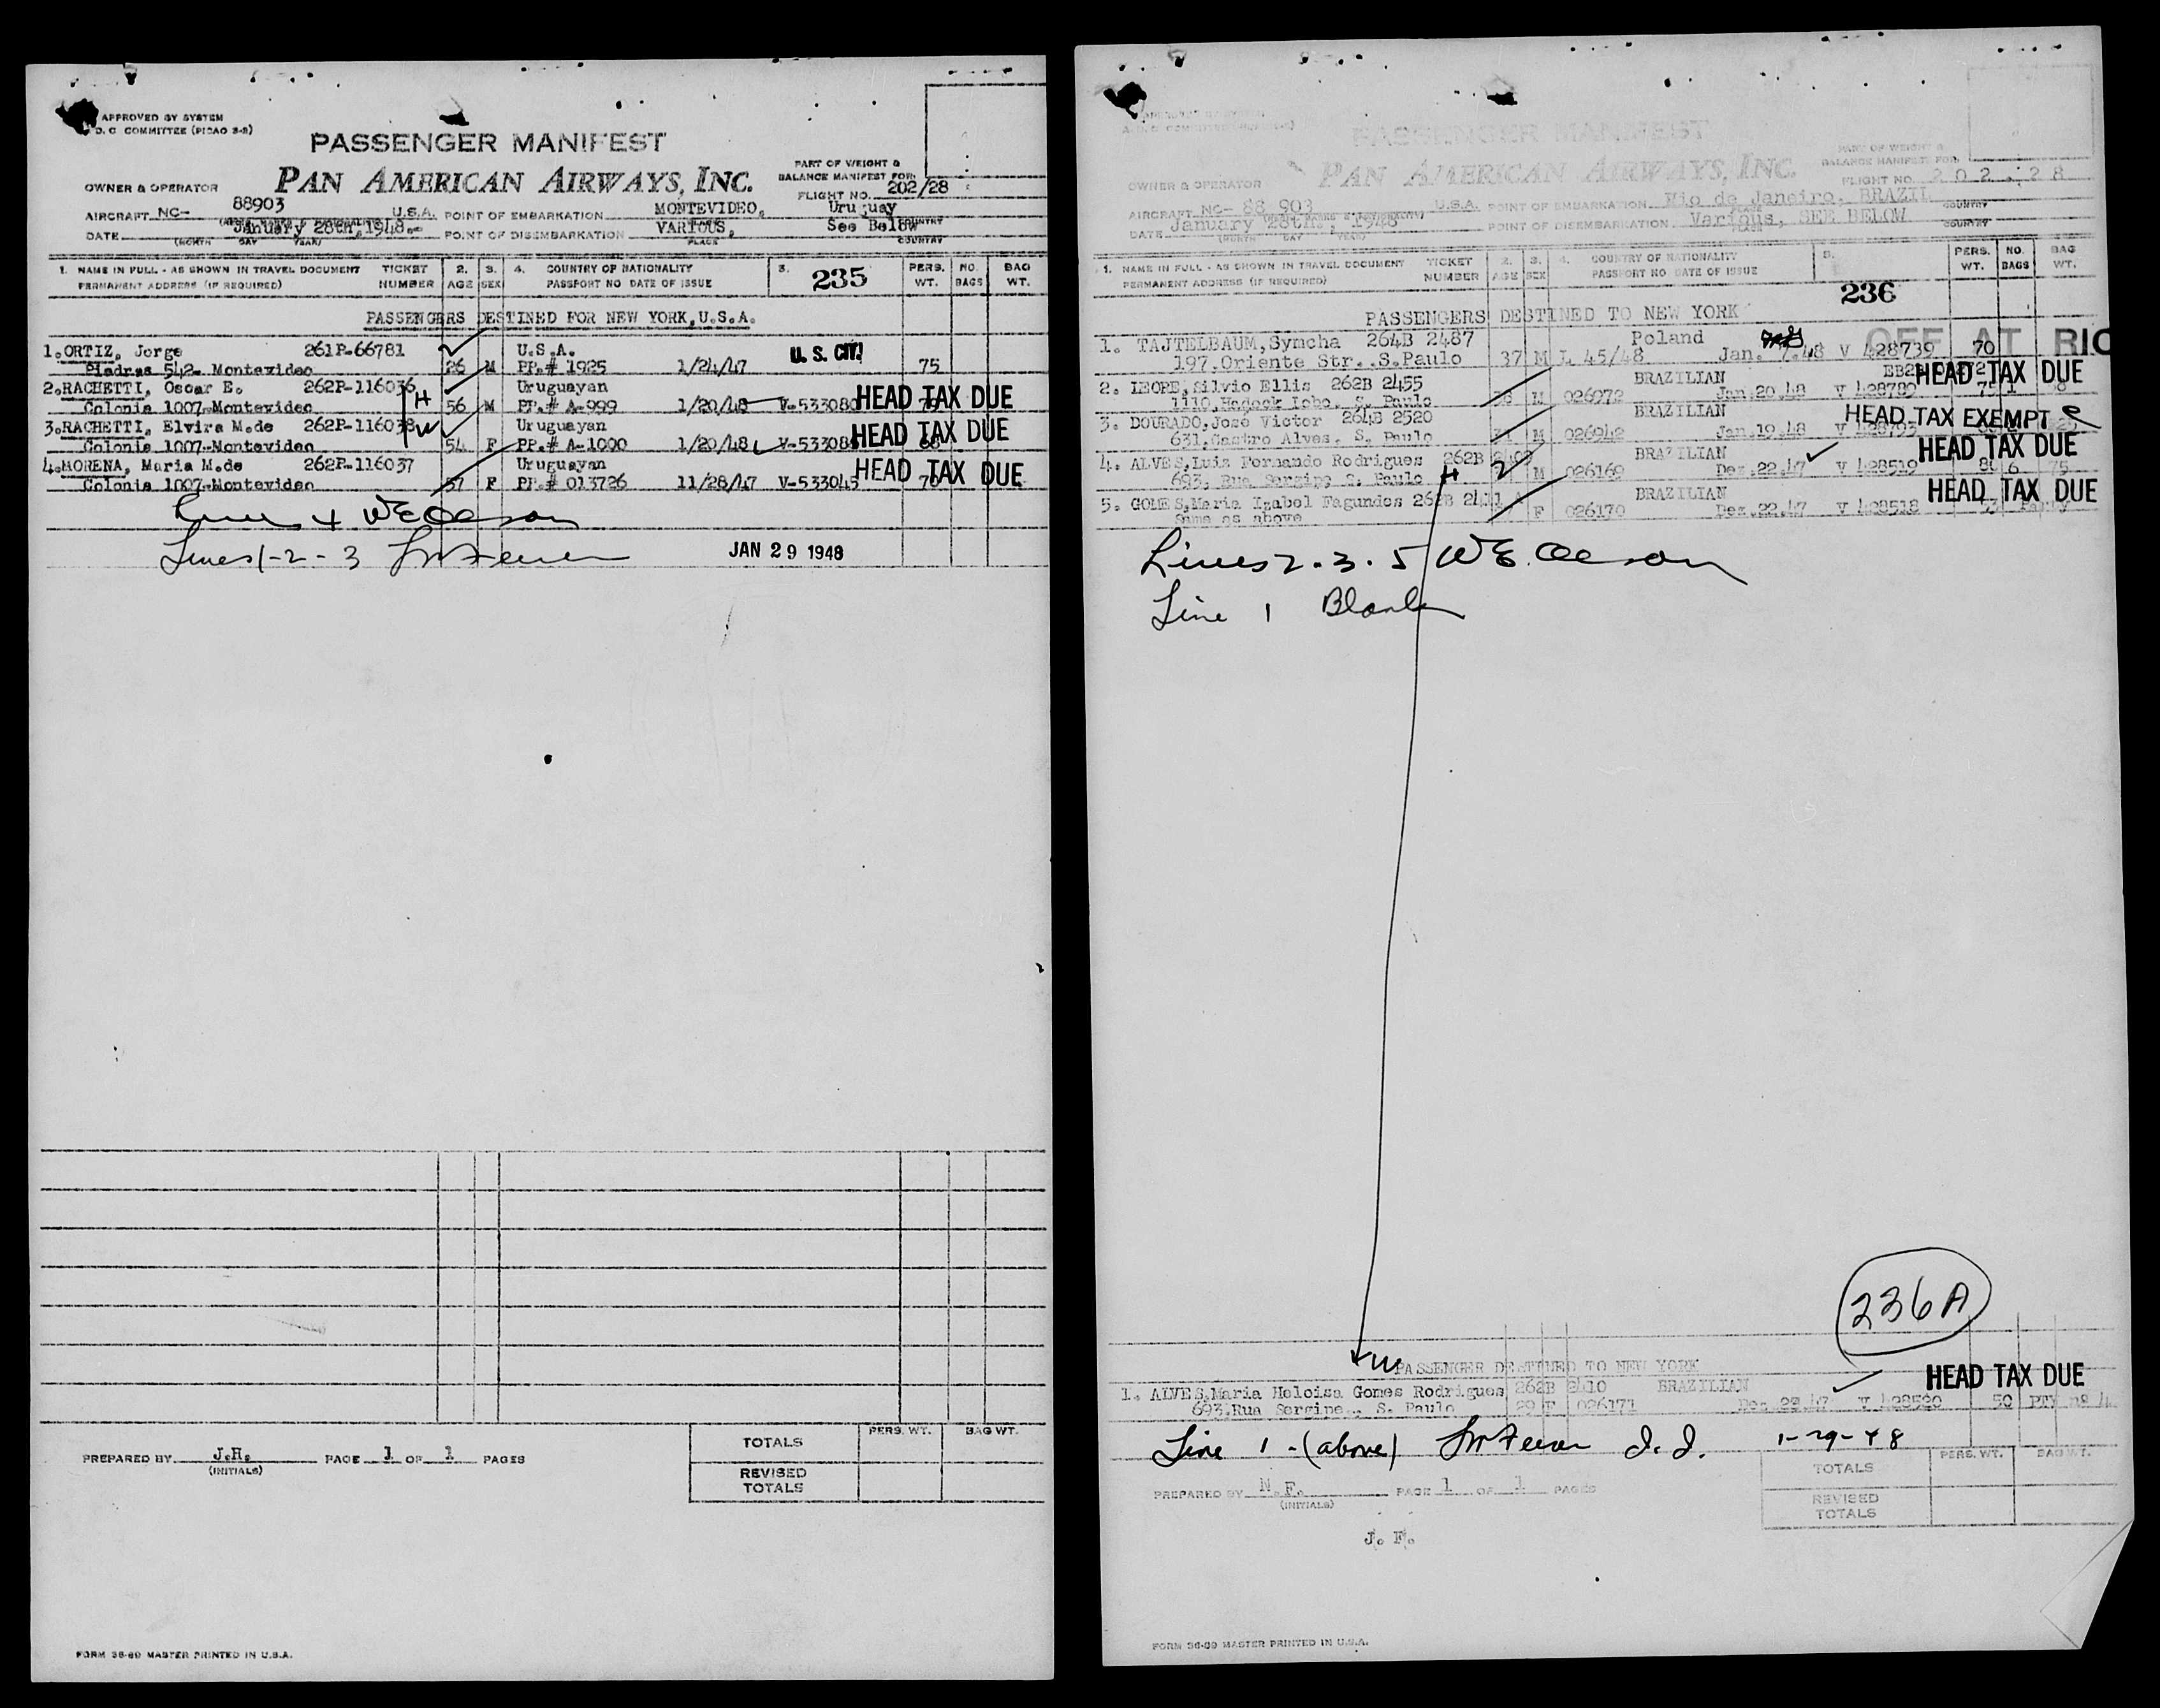 APPROVED BY SYSTEM
D. C COMMITTEE (PICAO 3-2)
PASSENGER MANIFEST
PAN AMERICAN AIRWAYS, INC.
PART OF WEIGHT &
BALANCE MANIFEST FOR:
FLIGHT NO. 202/28
OWNER & OPERATOR
AIRCRAFT NC- 88903 U.S.A. POINT OF EMBARKATION MONTEVIDEO, Uruguay
DATE January 28th, 1948. POINT OF DISEMBARKATION VARIOUS, See Below
(MONTH DAY YEAR) PLACE COUNTRY
1. NAME IN FULL - AS SHOWN IN TRAVEL DOCUMENT TICKET 2. 3. 4. COUNTRY OF NATIONALITY 5. 235 PERS. NO. BAG
PERMANENT ADDRESS (IF REQUIRED) NUMBER AGE SEX PASSPORT NO DATE OF ISSUE WT. BAGS WT.
PASSENGERS DESTINED FOR NEW YORK, U.S.A.
1. ORTIZ, Jorge 261P-66781 U.S.A. U. S. CIT.
542- Montevideo 26 M PP.# 1925 1/24/47 75
2. RACHETTI, Oscar E. 262P-116036 H Uruguayan
Colonia 1007-Montevideo 56 M PP.# A-999 1/20/48 V-533080 HEAD TAX DUE
3. RACHETTI, Elvira M.de 262P-116038 W Uruguayan
Colonia 1007-Montevideo 54 F PP.# A-1000 1/20/48 V-533081 HEAD TAX DUE 68
4. MORENA, Maria M.de 262P-116037 Uruguayan
Colonia 1007-Montevideo 57 F PP.# 013726 11/28/47 V-533045 HEAD TAX DUE
Lines 1-2-3 JAN 29 1948
TOTALS PERS. WT. BAG WT.
PREPARED BY J.H. PAGE 1 OF 1 PAGES
(INITIALS)
REVISED
TOTALS
FORM 36-89 MASTER PRINTED IN U.S.A.
PASSENGER MANIFEST
PAN AMERICAN AIRWAYS, INC.
PART OF WEIGHT &
BALANCE MANIFEST FOR:
FLIGHT NO. 202-28
OWNER & OPERATOR
AIRCRAFT NC- 88 903 U.S.A. POINT OF EMBARKATION Rio de Janeiro, BRAZIL
DATE January 28th., 1948 POINT OF DISEMBARKATION Various, SEE BELOW
(MONTH DAY YEAR) PLACE COUNTRY
1. NAME IN FULL - AS SHOWN IN TRAVEL DOCUMENT TICKET 2. 3. 4. COUNTRY OF NATIONALITY 5. PERS. NO. BAG
PERMANENT ADDRESS (IF REQUIRED) NUMBER AGE SEX PASSPORT NO DATE OF ISSUE WT. BAGS WT.
236
PASSENGERS DESTINED TO NEW YORK
1. TAJTELBAUM, Symcha 264B 2487 Poland OFF AT RIO
197.Oriente Str..S.Paulo 37 M L 45/48 Jan. 7.48 V 428739 70
2. Silvio Ellis 262B 2455 BRAZILIAN HEAD TAX DUE
1110, Lobo. S. Paulo M 026972 Jan.20.48 V 428789
3. DOURADO, José Victor 264B 2520 BRAZILIAN HEAD TAX EXEMPT
631, Castro Alves, S. Paulo M 026942 Jan.19.48 V 428793
4. ALVES, Luis Fernando Rodrigues 262B BRAZILIAN HEAD TAX DUE
693, Rua Sergipe S. Paulo H M 026169 Dez.22.47 V 428519 75
5. GOMES, Maria Izabel Fagundes 262B 2411 BRAZILIAN HEAD TAX DUE
Same as above F 026170 Dez.22.47 V 428518
Lines 2. 3. 5
Line 1 Blank
236A
W PASSENGER DESTINED TO NEW YORK
1. ALVES, Maria Heloisa Gomes Rodrigues 262B 2410 BRAZILIAN HEAD TAX DUE
693,Rua Sergipe., S. Paulo 29 F 026171 Dec 22 47 V 428520 50 PTY nº 4
Line 1 - (above) 1-29-48
TOTALS PERS. WT. BAG WT.
PREPARED BY N. F. PAGE 1 OF 1 PAGES
(INITIALS)
REVISED
TOTALS
J. F.
FORM 36-89 MASTER PRINTED IN U.S.A.